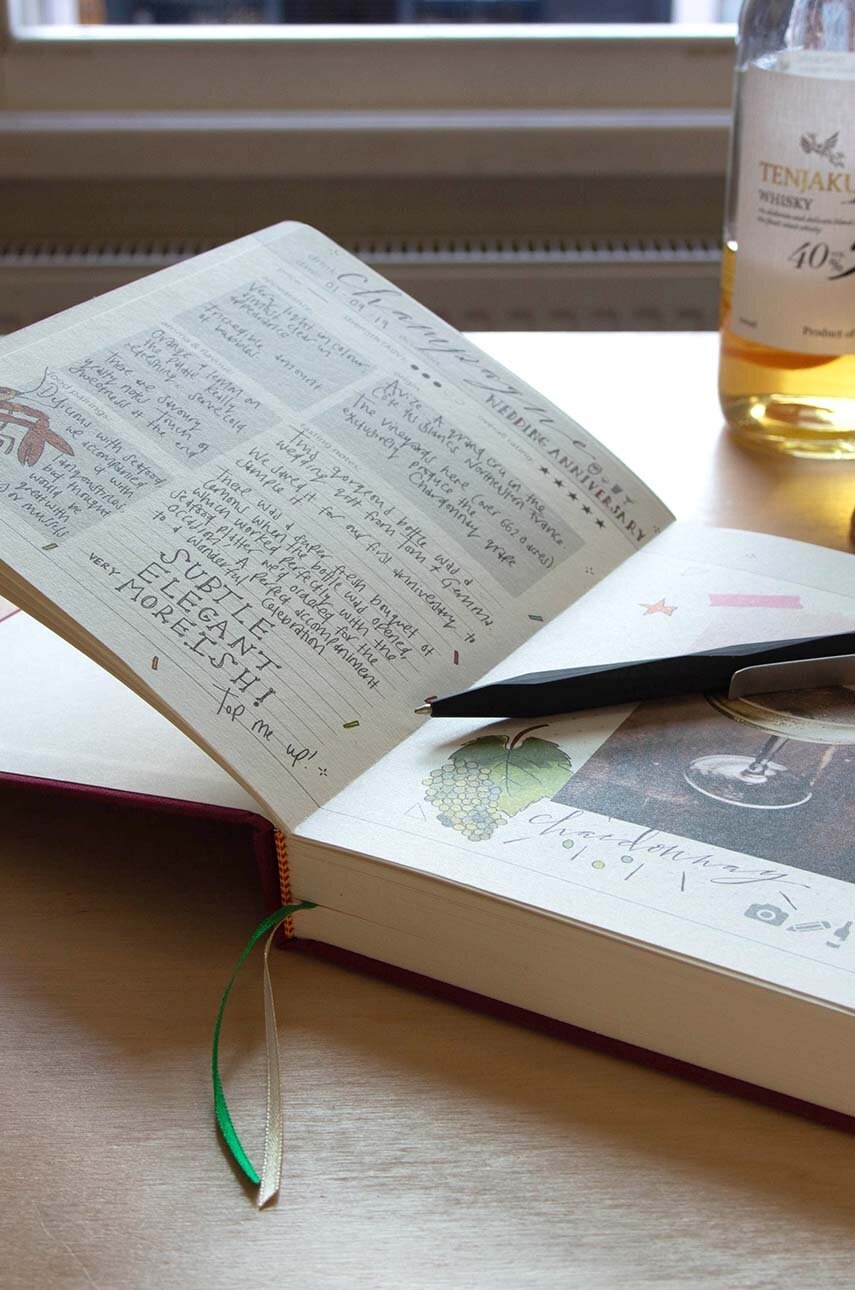 Champagne
01·09·19
WEDDING ANNIVERSARY
Very light in colour
almost clear in
appearance
amount
of bubbles
aroma & flavour:
Orange & lemon on
the palate really
refreshing. Serve cold
There are savoury
yeasty notes Touch of
sweetness at the end
food pairings:
Delicious with seafood
we accompanied
it with
langoustines
but thought
would be
great with
or mussels
Avize - A grand cru in the
Cote des Blancs Northeastern France.
The vineyards here (over 662.0 acres)
exclusively produce the
Chardonnay grape
tasting notes:
This gorgeous bottle was a
wedding gift from Tom & Gemma.
We saved it for our first anniversary to
sample it
There was a super fresh bouquet of
lemons when the bottle was opened,
which worked perfectly with the
seafood platter we'd ordered for the
occasion! A perfect accompaniment
to a wonderful celebration
SUBTLE
ELEGANT
VERY MOREISH!
Top me up!
chardonnay
TENJAKU
WHISKY
40%
Product of